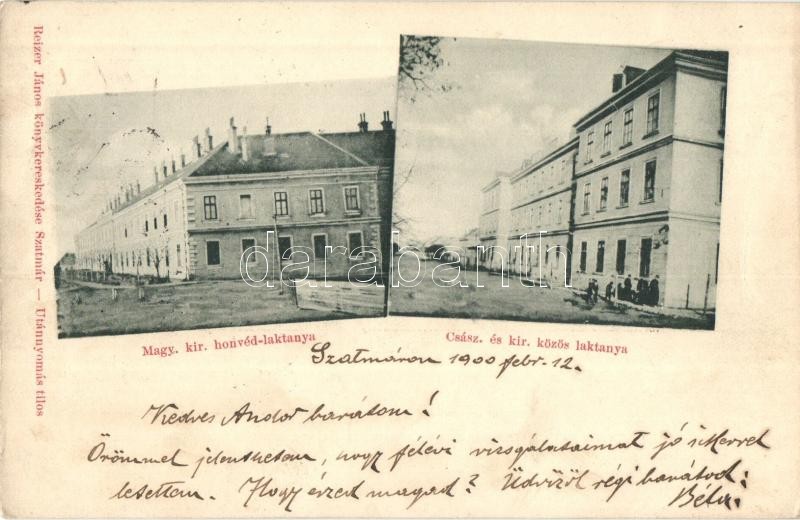 Reizer János könyvkereskedése Szatmár — Utánnyomás tilos
darabanth
Magy. kir. honvéd-laktanya
Csász. és kir. közös laktanya
Szatmáron 1900 febr. 12.
Kedves Andor barátom!
Örömmel jelenthetem, hogy félévi vizsgálataimat jó sikerrel
letettem. Hogy érzed magad? Üdvözöl régi barátod:
Béla.